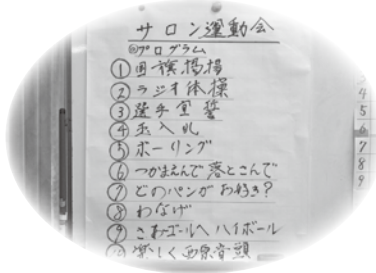 サロン運動会
◎プログラム
① 国旗掲揚
② ラジオ体操
③ 選手宣誓
④ 玉入れ
⑤ ボーリング
⑥ つかまえんで 落とこんで
⑦ どのパンがお好き?
⑧ わなげ
⑨ さあゴールへ ハイボール
⑩ 楽しく西原音頭
4
5
6
7
8
9